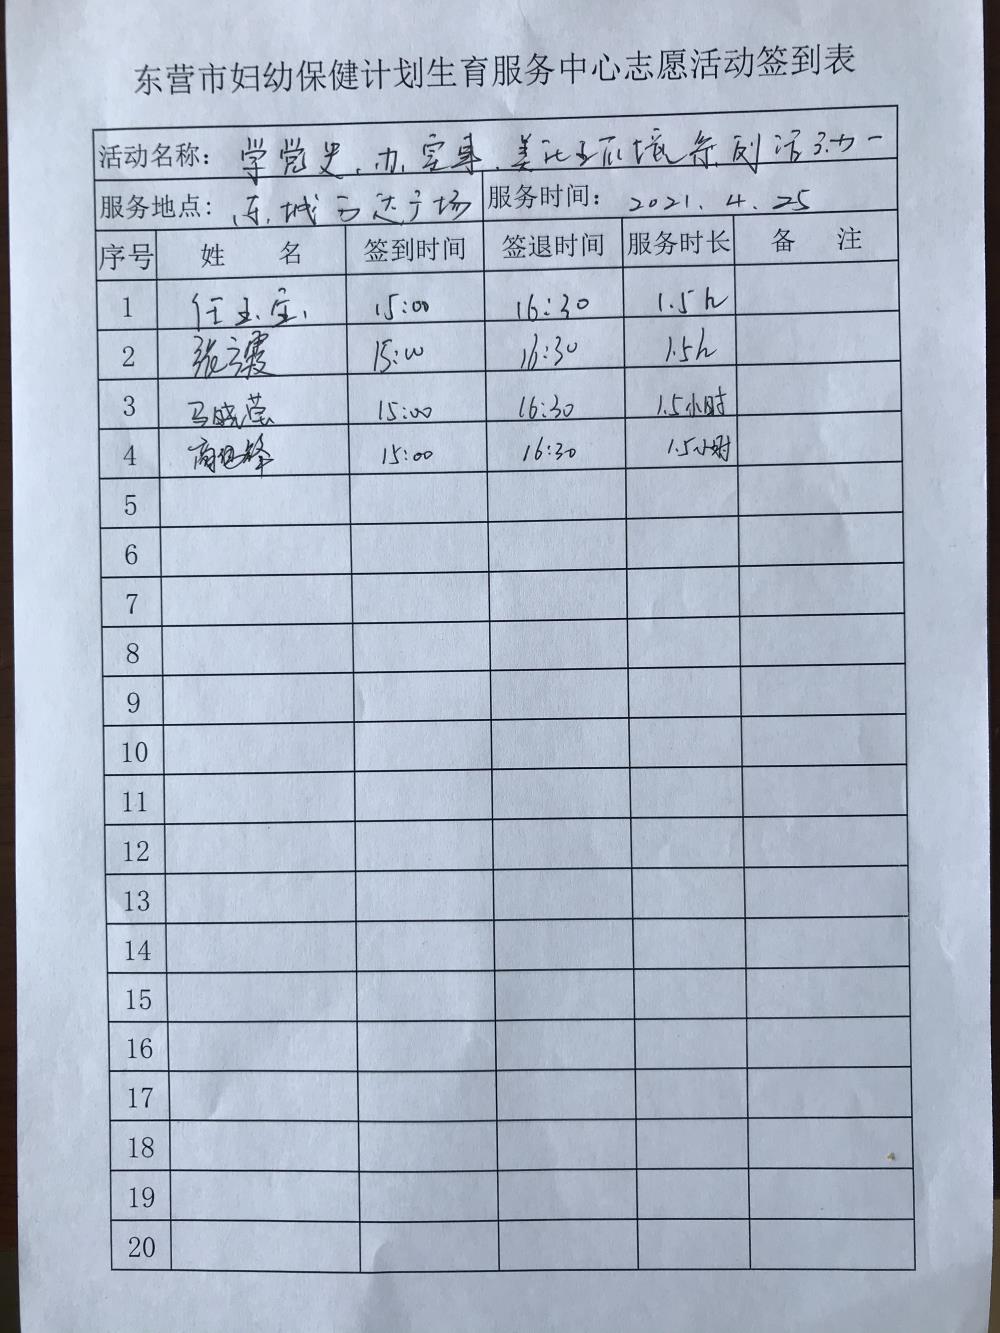 东营市妇幼保健计划生育服务中心志愿活动签到表
活动名称: 学党史、办实事、美化 环境系列活动一
服务地点: 东城万达广场 服务时间: 2021.4.25
序号 姓 名 签到时间 签退时间 服务时长 备 注
1 任玉宝 15:00 16:30 1.5h
2 张 霞 15:00 16:30 1.5h
3 马晓莹 15:00 16:30 1.5小时
4 15:00 16:30 1.5小时
5
6
7
8
9
10
11
12
13
14
15
16
17
18
19
20